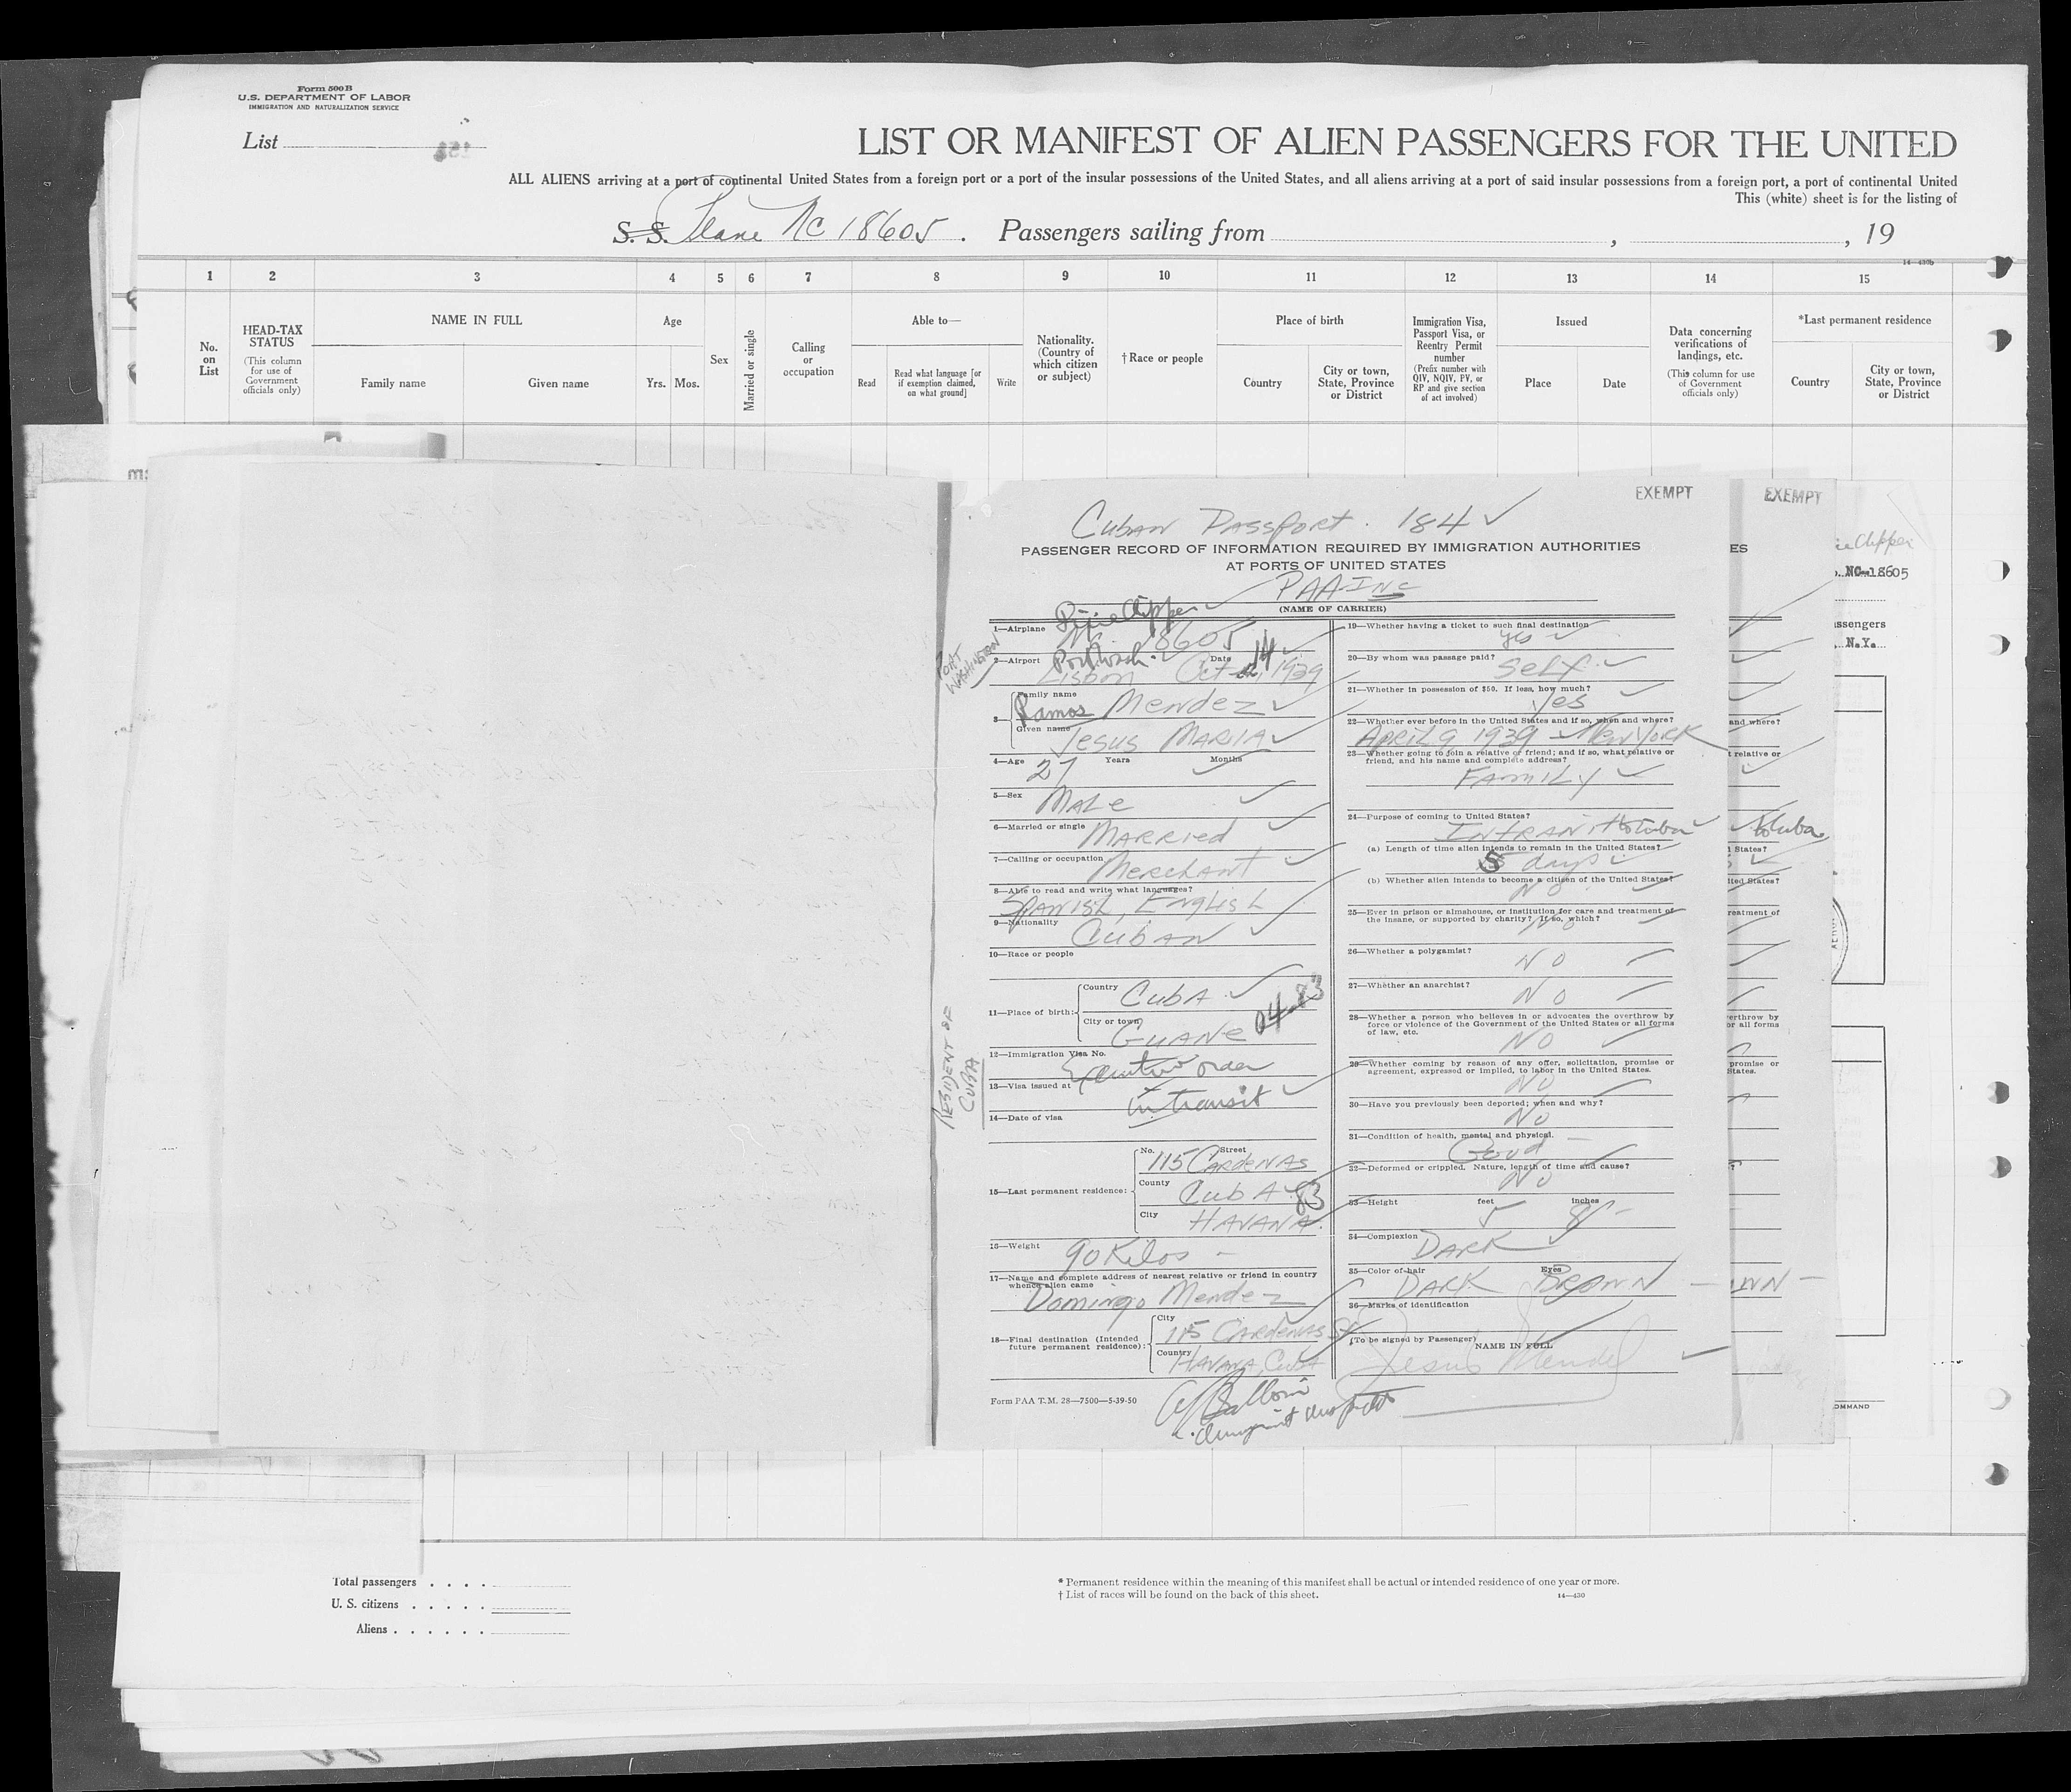 Form 500 B
U.S. DEPARTMENT OF LABOR
IMMIGRATION AND NATURALIZATION SERVICE
List
LIST OR MANIFEST OF ALIEN PASSENGERS FOR THE UNITED
ALL ALIENS arriving at a port of continental United States from a foreign port or a port of the insular possessions of the United States, and all aliens arriving at a port of said insular possessions from a foreign port, a port of continental United
This (white) sheet is for the listing of
S. S. Plane NC 18605. Passengers sailing from , , 19
14—430b
1 2 3 4 5 6 7 8 9 10 11 12 13 14 15
No. on List
HEAD-TAX STATUS
(This column for use of Government officials only)
NAME IN FULL
Family name Given name
Age
Yrs. Mos.
Sex
Married or single
Calling or occupation
Able to—
Read
Read what language [or if exemption claimed, on what ground]
Write
Nationality. (Country of which citizen or subject)
†Race or people
Place of birth
Country
City or town, State, Province or District
Immigration Visa, Passport Visa, or Reentry Permit number
(Prefix number with QIV, NQIV, PV, or RP and give section of act involved)
Issued
Place Date
Data concerning verifications of landings, etc.
(This column for use of Government officials only)
*Last permanent residence
Country
City or town, State, Province or District
EXEMPT
EXEMPT
Cuban Passport. 184
PASSENGER RECORD OF INFORMATION REQUIRED BY IMMIGRATION AUTHORITIES
AT PORTS OF UNITED STATES
PAA-Inc
(NAME OF CARRIER)
1—Airplane Dixie Clipper
NC 18605
PORT WASHINGTON
2—Airport Port Wash. Date 14
Lisbon Oct 1939
3— Family name
Ramos Mendez
Given name
Jesus Maria
4—Age 27 Years Months
5—Sex Male
6—Married or single Married
7—Calling or occupation Merchant
8—Able to read and write what languages?
Spanish, English
9—Nationality Cuban
10—Race or people
11—Place of birth: Country Cuba
City or town Guane
04-83
12—Immigration Visa No.
Executive order
13—Visa issued at
in transit
14—Date of visa
RESIDENT OF CUBA
15—Last permanent residence: No. Street 115 Cardenas
County Cuba 83
City Havana.
16—Weight 90 Kilos
17—Name and complete address of nearest relative or friend in country whence alien came
Domingo Mendez
18—Final destination (Intended future permanent residence):
City 115 Cardenas St
Country Havana, Cuba
Form PAA T.M. 28—7500—5-39-50
19—Whether having a ticket to such final destination
yes
20—By whom was passage paid?
Self
21—Whether in possession of $50. If less, how much?
Yes
22—Whether ever before in the United States and if so, when and where?
April 9 1939 New York
23—Whether going to join a relative or friend; and if so, what relative or friend, and his name and complete address?
Family
24—Purpose of coming to United States?
Intransit to Cuba
(a) Length of time alien intends to remain in the United States?
5 days
(b) Whether alien intends to become a citizen of the United States?
No
25—Ever in prison or almshouse, or institution for care and treatment of the insane, or supported by charity? If so, which?
No
26—Whether a polygamist?
No
27—Whether an anarchist?
No
28—Whether a person who believes in or advocates the overthrow by force or violence of the Government of the United States or all forms of law, etc.
No
29—Whether coming by reason of any offer, solicitation, promise or agreement, expressed or implied, to labor in the United States.
No
30—Have you previously been deported; when and why?
No
31—Condition of health, mental and physical.
Good
32—Deformed or crippled. Nature, length of time and cause?
No
33—Height feet inches
5 8
34—Complexion Dark
35—Color of hair Eyes
Dark Brown
36—Marks of identification
(To be signed by Passenger) NAME IN FULL
Jesus Mendez
ES
and where?
t relative or
to Cuba
States?
ited States?
reatment of
erthrow by
or all forms
promise or
States.
WN
Clipper
NC-18605
ssengers
N.Y.
OMMAND
Total passengers
U. S. citizens
Aliens
* Permanent residence within the meaning of this manifest shall be actual or intended residence of one year or more.
† List of races will be found on the back of this sheet.
14—430